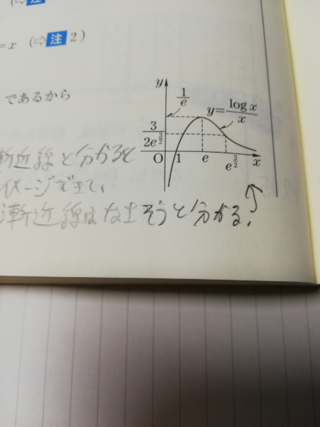 =x (⇨注2)
であるから
y
1/e
y=log x/x
3/2e^{3/2}
O 1 e e^{3/2} x
漸近線と分かると
イメージできて、
漸近線はなさそうと分かる。